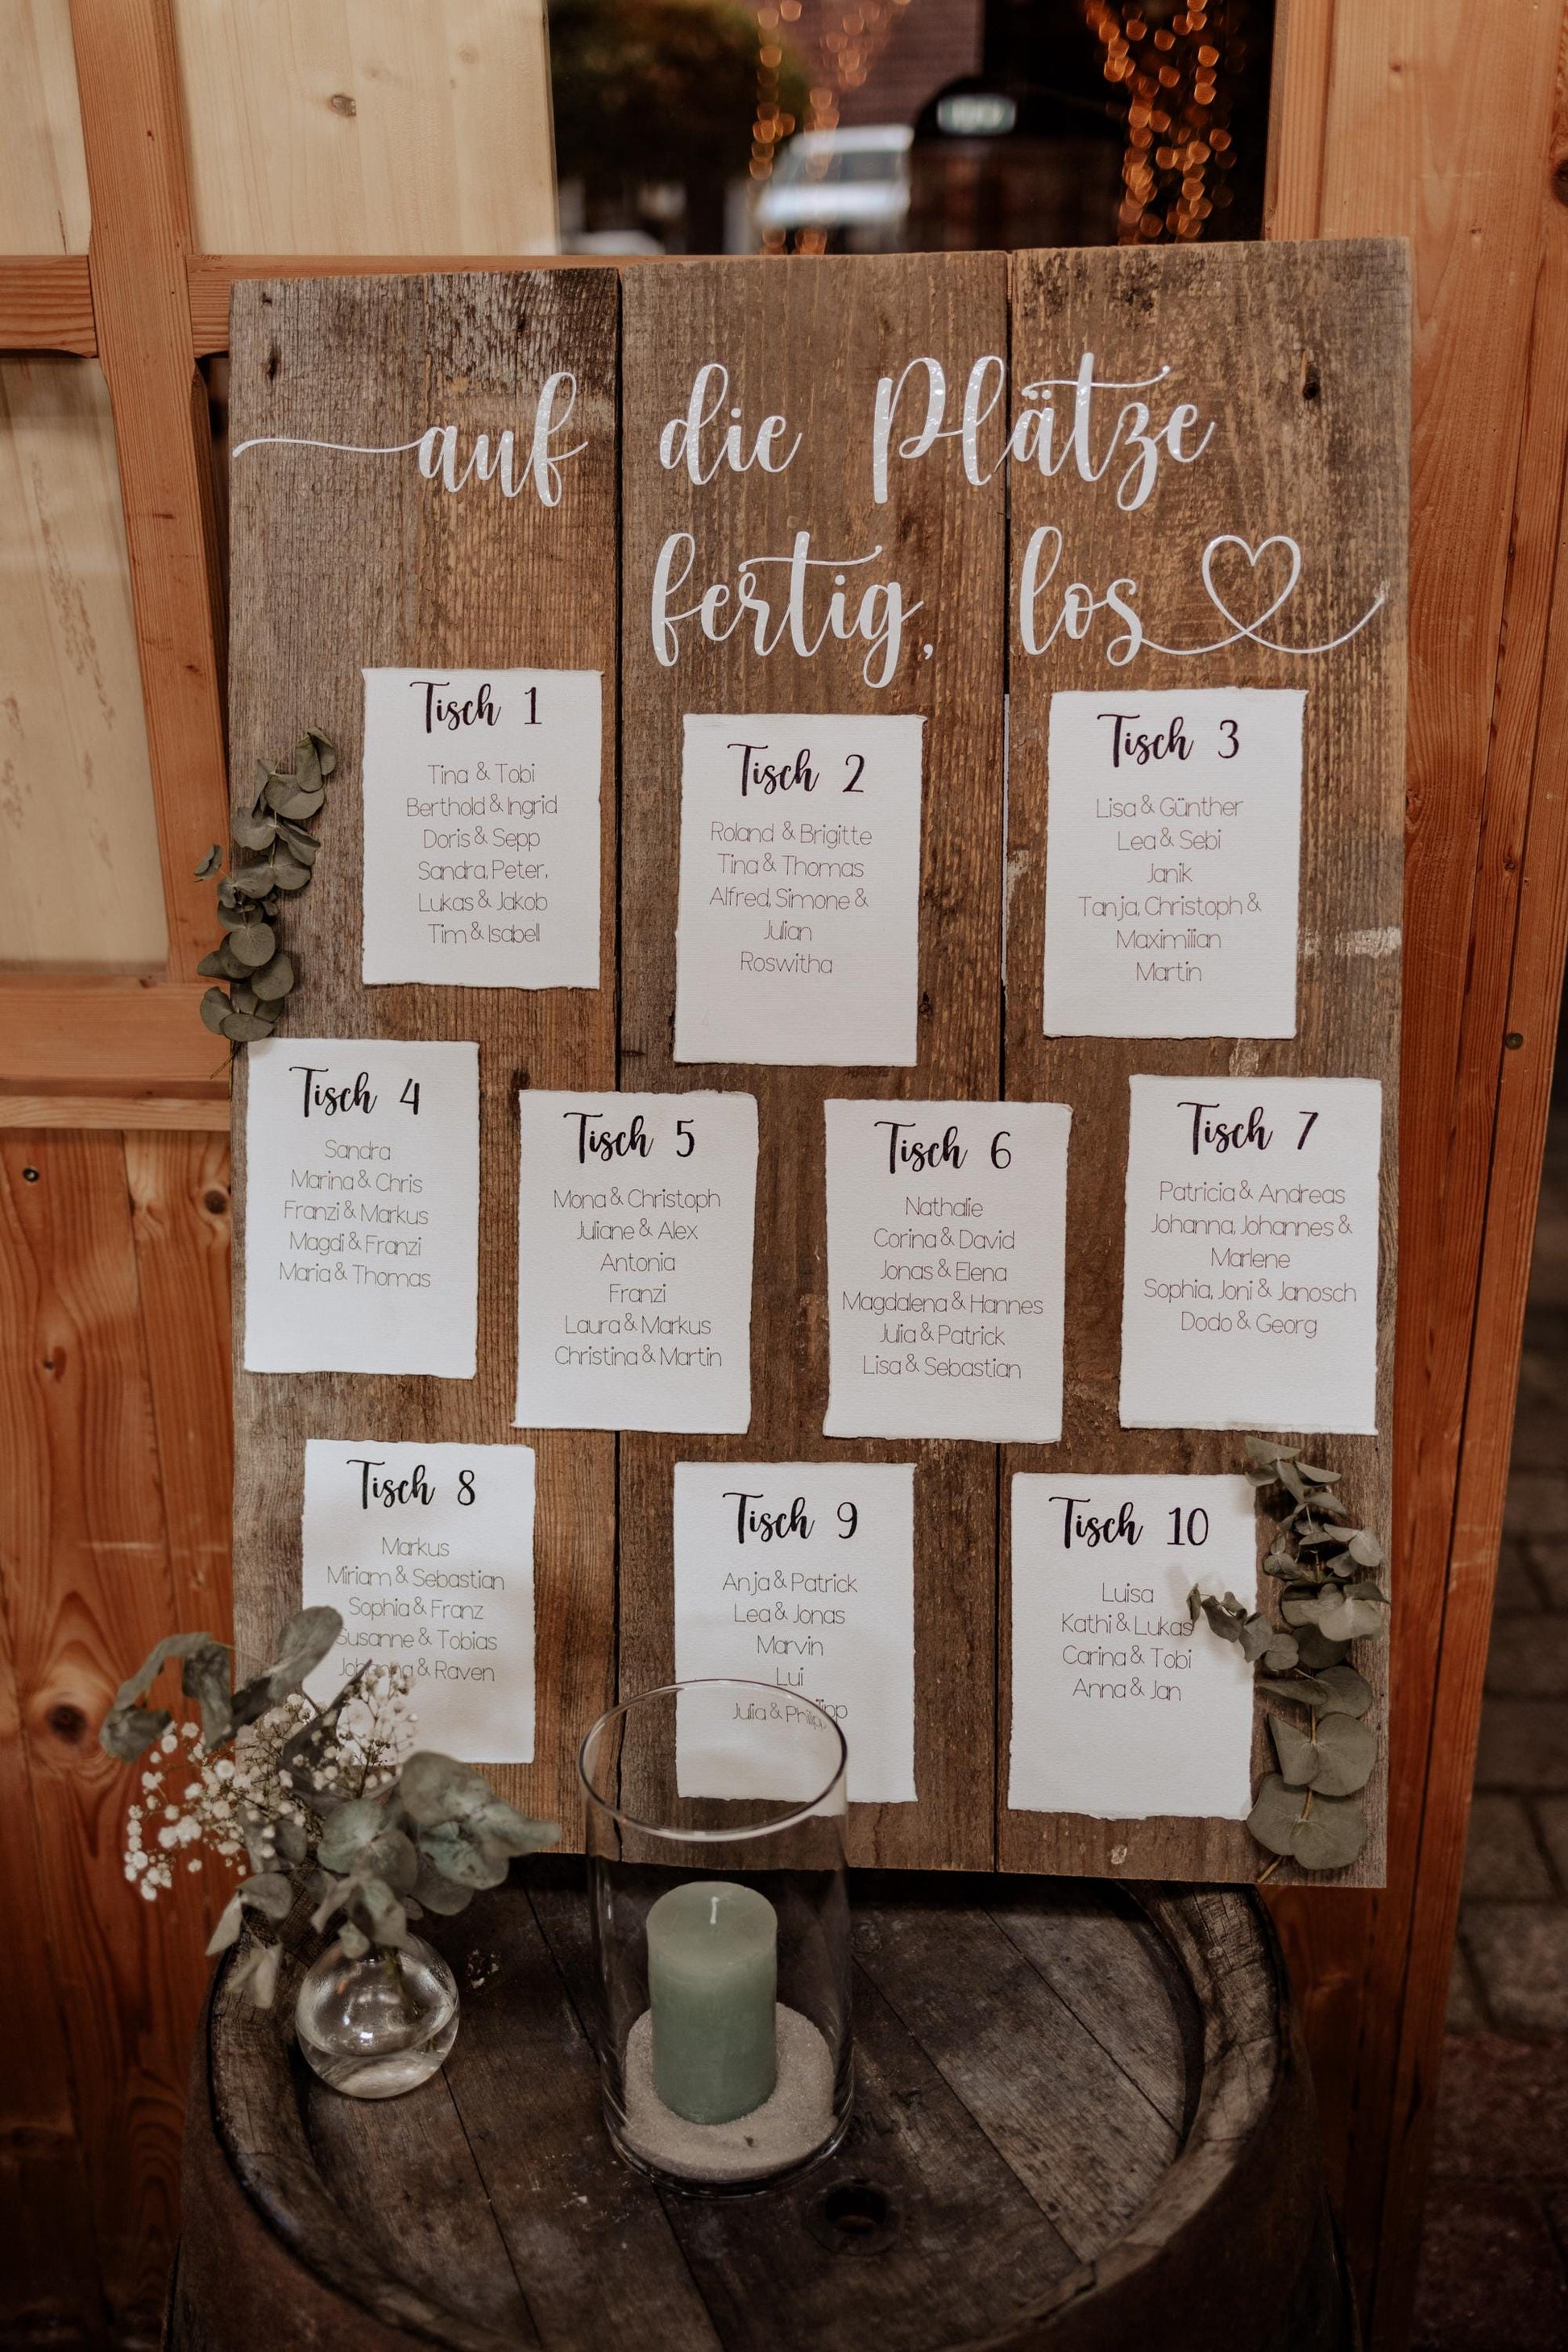 auf die Plätze
fertig, los
Tisch 1
Tina & Tobi
Berthold & Ingrid
Doris & Sepp
Sandra, Peter,
Lukas & Jakob
Tim & Isabell
Tisch 2
Roland & Brigitte
Tina & Thomas
Alfred, Simone &
Julian
Roswitha
Tisch 3
Lisa & Günther
Lea & Sebi
Janik
Tanja, Christoph &
Maximilian
Martin
Tisch 4
Sandra
Marina & Chris
Franzi & Markus
Magdi & Franzi
Maria & Thomas
Tisch 5
Mona & Christoph
Juliane & Alex
Antonia
Franzi
Laura & Markus
Christina & Martin
Tisch 6
Nathalie
Corina & David
Jonas & Elena
Magdalena & Hannes
Julia & Patrick
Lisa & Sebastian
Tisch 7
Patricia & Andreas
Johanna, Johannes &
Marlene
Sophia, Joni & Janosch
Dodo & Georg
Tisch 8
Markus
Miriam & Sebastian
Sophia & Franz
Susanne & Tobias
Johanna & Raven
Tisch 9
Anja & Patrick
Lea & Jonas
Marvin
Lui
Julia & Philipp
Tisch 10
Luisa
Kathi & Lukas
Carina & Tobi
Anna & Jan